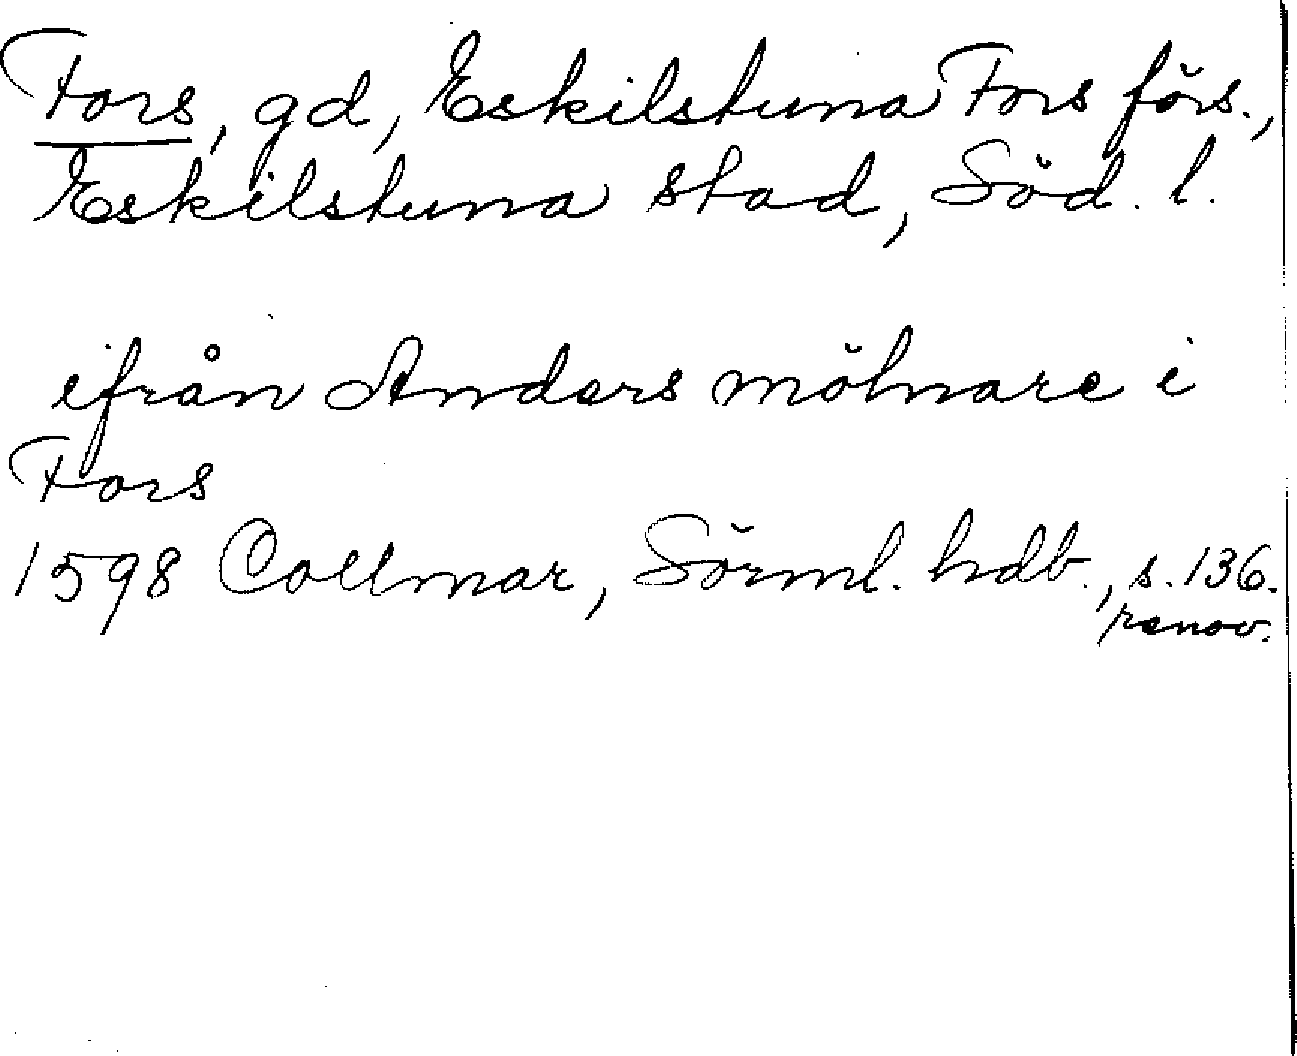 Fors, gd, Eskilstuna Fors förs.,
Eskilstuna stad, Söd. l.
ifrån Anders mölnare i
Fors
1598 Collmar, Sörml. hdb., s. 136.
renov.